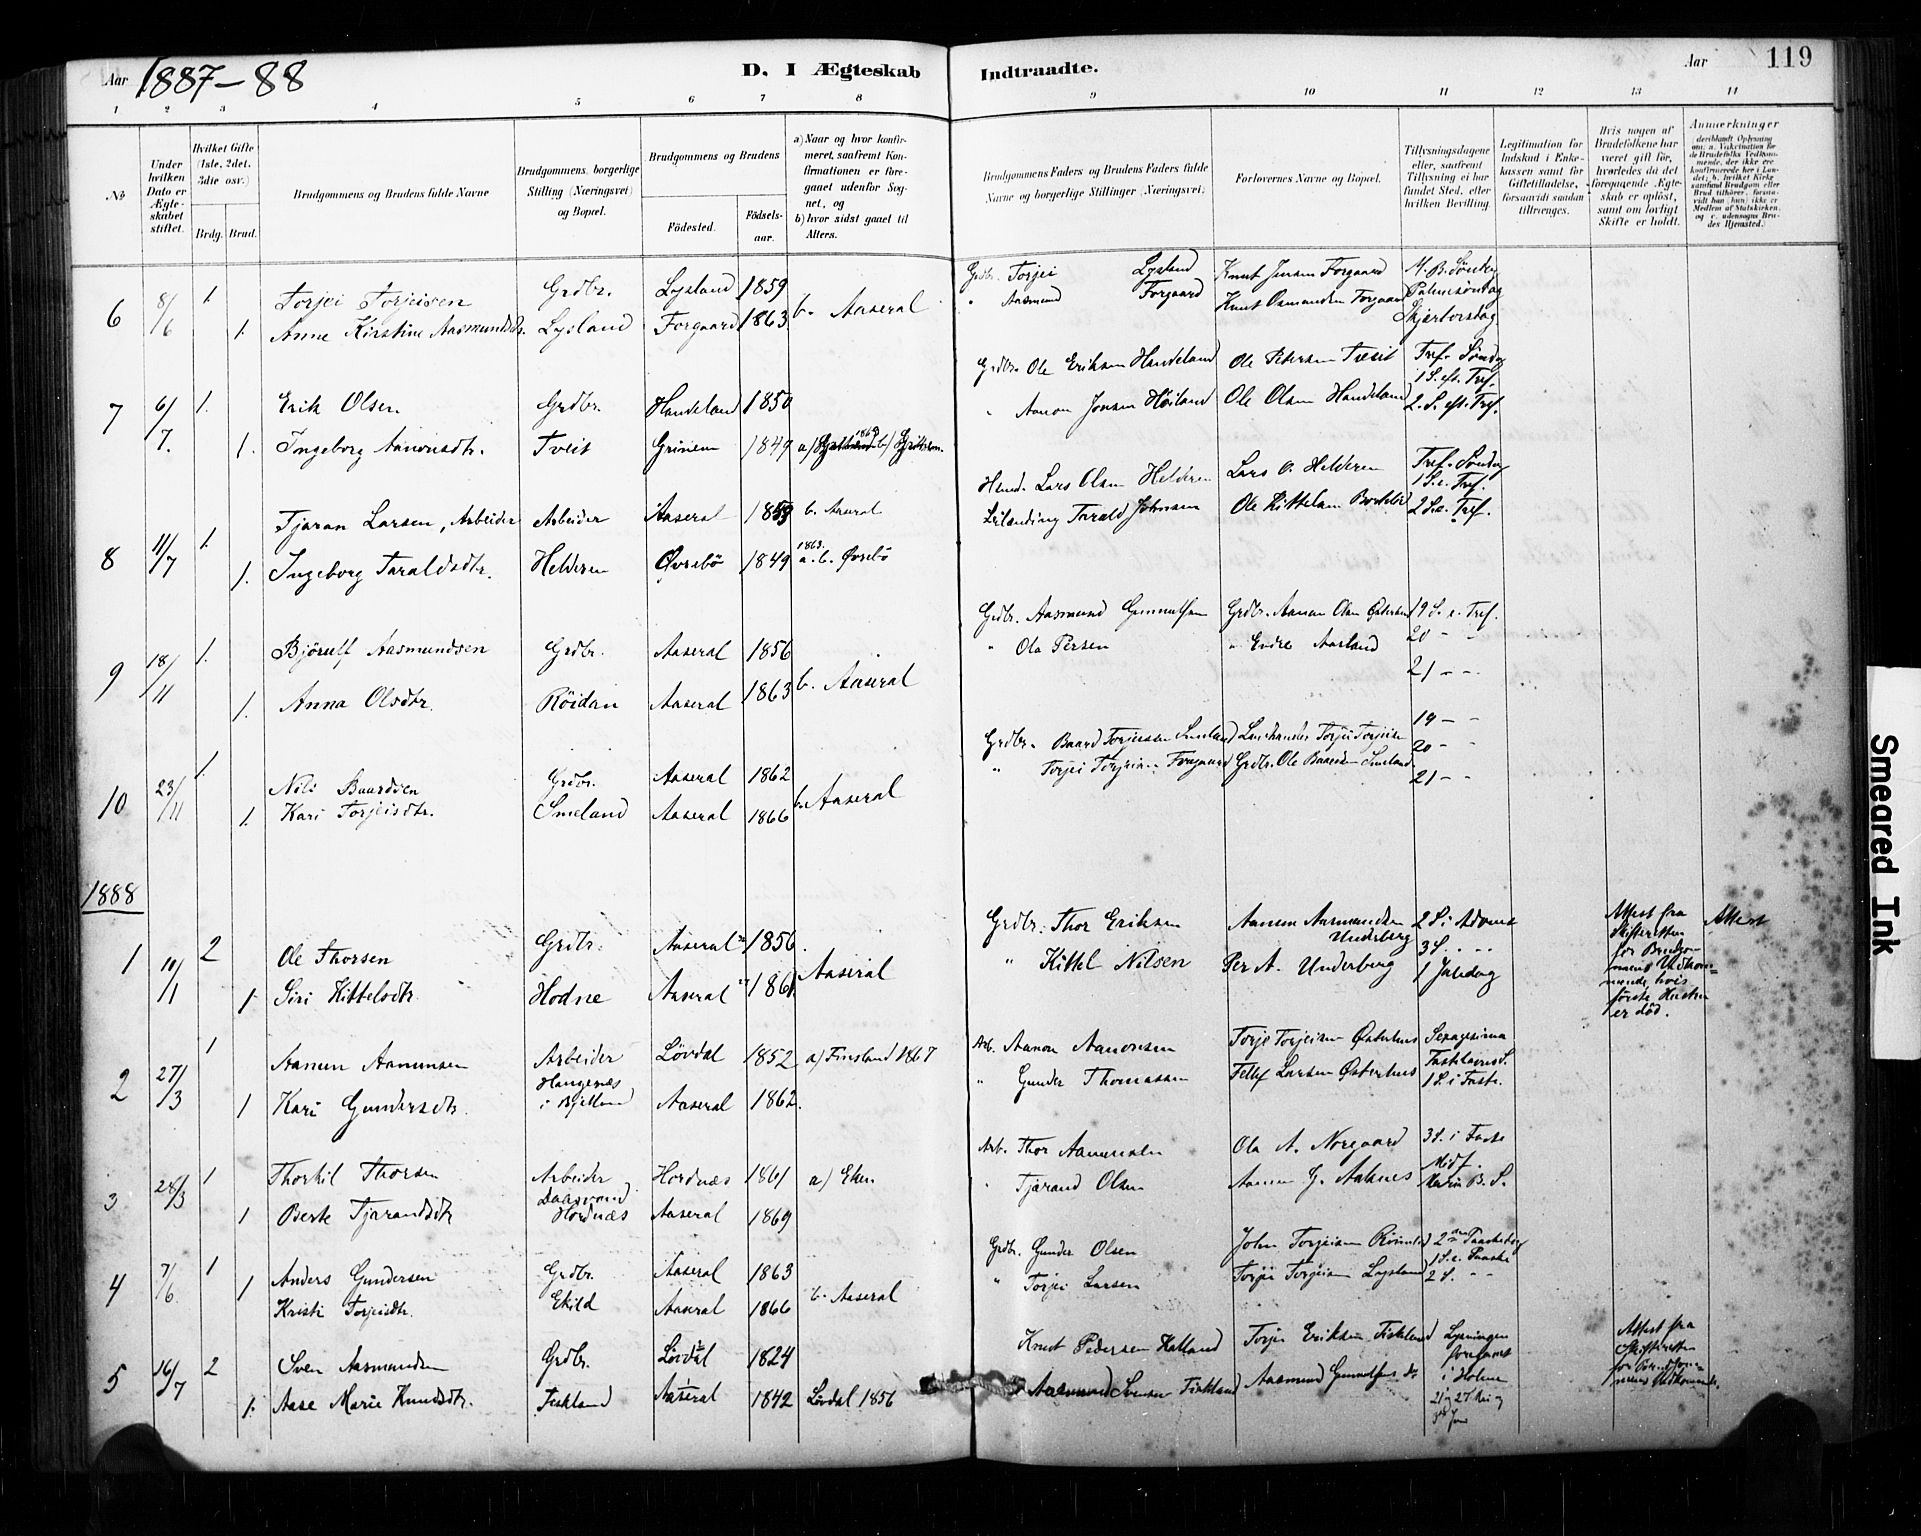 Aar 1887-88
D. I Ægteskab Indtraadte.
Aar 119
1 2 3 4 5 6 7 8 9 10 11 12 13 14
No
Under hvilken Dato er Ægteskabet stiftet.
Hvilket Gifte (1ste, 2det, 3die osv.)
Brdg. Brud.
Brudgommens og Brudens fulde Navne
Brudgommens borgerlige Stilling (Næringsvei) og Bopæl.
Brudgommens og Brudens
Fødested.
Fødselsaar.
a) Naar og hvor konfirmeret, saafremt Konfirmationen er foregaaet udenfor Sognet, og
b) hvor sidst gaaet til Alters.
Brudgommens Faders og Brudens Faders fulde Navne og borgerlige Stillinger (Næringsvei)
Forlovernes Navne og Bopæl.
Tillysningsdagene eller, saafremt Tillysning ei har fundet Sted, efter hvilken Bevilling.
Legitimation for Indskud i Enkekassen samt for Giftetilladelse, forsaavidt saadan tiltrænges.
Hvis nogen af Brudefolkene har været gift før, hvorledes da det foregaaende Ægteskab er opløst, samt om lovligt Skifte er holdt.
Anmerkninger
6 8/6 1. Torjei Torjeisen Grdbr. Lysland 1859 b. Aaseral Grdbr. Torjei Lysland Knut Jensen Forgaard M. B. Søndag
1. Anne Kirstine Aasmundsdtr. Lysland Forgaard 1863 " Aasmund Forgaard Knut Osmundsen Forgaard Palmesøndag
Skjertorsdag
7 6/7. 1. Erik Olsen Grdbr. Handeland 1850 Grdbr. Ole Eriksen Handeland Ole Petersen Tveit Tref. Søndag
1 S. eft. Tref.
1. Ingeborg Aanonsdtr. Tveit Grinem 1849 " Aanon Jonsen Høiland Ole Olsen Handeland 2. S. eft. Tref.
8 11/7 1. Tjaran Larsen, Arbeider Arbeider Aaseral 1859 b. Aaseral Lars Olsen Helderen Lars O. Helderen Tref. Søndag
1 S. e. Tref.
1. Ingeborg Taraldsdtr. Helderen Øvrebø 1849 1863. a. b. Øvrebø Leilænding Tarald Johnsen Ole Kittelsen 2 S. e. Tref.
9 18/11 1. Bjørulf Aasmundsen Grdbr. Aaseral 1856 b. Aaseral Grdbr. Aasmund Gunnulfsen Grdbr. Aanon Olsen 19 S. e. Tref.
1. Anna Olsdtr. Røidan Aaseral 1863 " Ole Persen " Endre Aasland 20 - -
21 - -
10 23/11 1. Nils Baardsen Grdbr. Aaseral 1862 b. Aaseral Grdbr. Baard Torjeisen Smeland Torjei Torjeisen 19 - -
1. Kari Torjeisdtr. Smeland Aaseral 1866 " Torjei Torjeisen Forgaard Grdbr. Ole Baardsen Smeland 20 - -
21 - -
1888
1 10/1 2 Ole Thorsen Grdbr. Aaseral 1856 Aaseral Grdbr. Thor Eriksen Aanon Aasmundsen Underberg 2 S. i Advent Attest fra Skifteretten for Brudgommens Vedkommende, hvis første Hustru er død. Attest
1. Siri Kittelsdtr. Hodne Aaseral 1861. " Kittel Nilsen Per A. Underberg 3 S. - -
1 Juledag
2 27/3 1 Aanun Aanunsen Arbeider Løvdal 1852 a) Finsland 1867 Arb. Aanon Aanonsen Torje Torjeisen Østerhus Sexagesima
1 Kari Gundersdtr. Haugenæs i Bjelland Aaseral 1862. " Gunder Thomassen Fellef Larsen Østerhus Fastelavns S.
1 S. i Faste.
3 28/3 1 Thorkil Thorsen Arbeider Hordnæs 1861 a) Eken Arb. Thor Aanunsen Ola A. Norgaard 3 S. i Faste
1 Berte Tjarandsdtr Hordnæs Aaseral 1869 " Tjarand Olsen Aanon J. Aaknes Midf.
Mariæ B. S.
4 7/6 1 Anders Gundersen Grdbr. Aaseral 1863 b. Aaseral Grdbr. Gunder Olsen John Torjeisen 2den Paaskedag
1 Kristi Torjeisdtr. Ekild Aaseral 1866 " Torjei Larsen Torjei Torjeisen Lysland 1 S. e. Paaske
2 S. - -
5 16/7 2 Sven Aasmundsen Grdbr. Løvdal 1824 Knut Pedersen Hatland Torjei Eriksen Fiskland Lysningen foregaaet i Holme Attest fra Skifteretten for Brudgommens Vedkommende.
1. Aase Marie Knudsdtr. Fiskland Aaseral 1842 Løvdal 1856 Aasmund Svensen Fiskland Aasmund Gunnulfsen do 21 og 27 Mai og
Smeared Ink